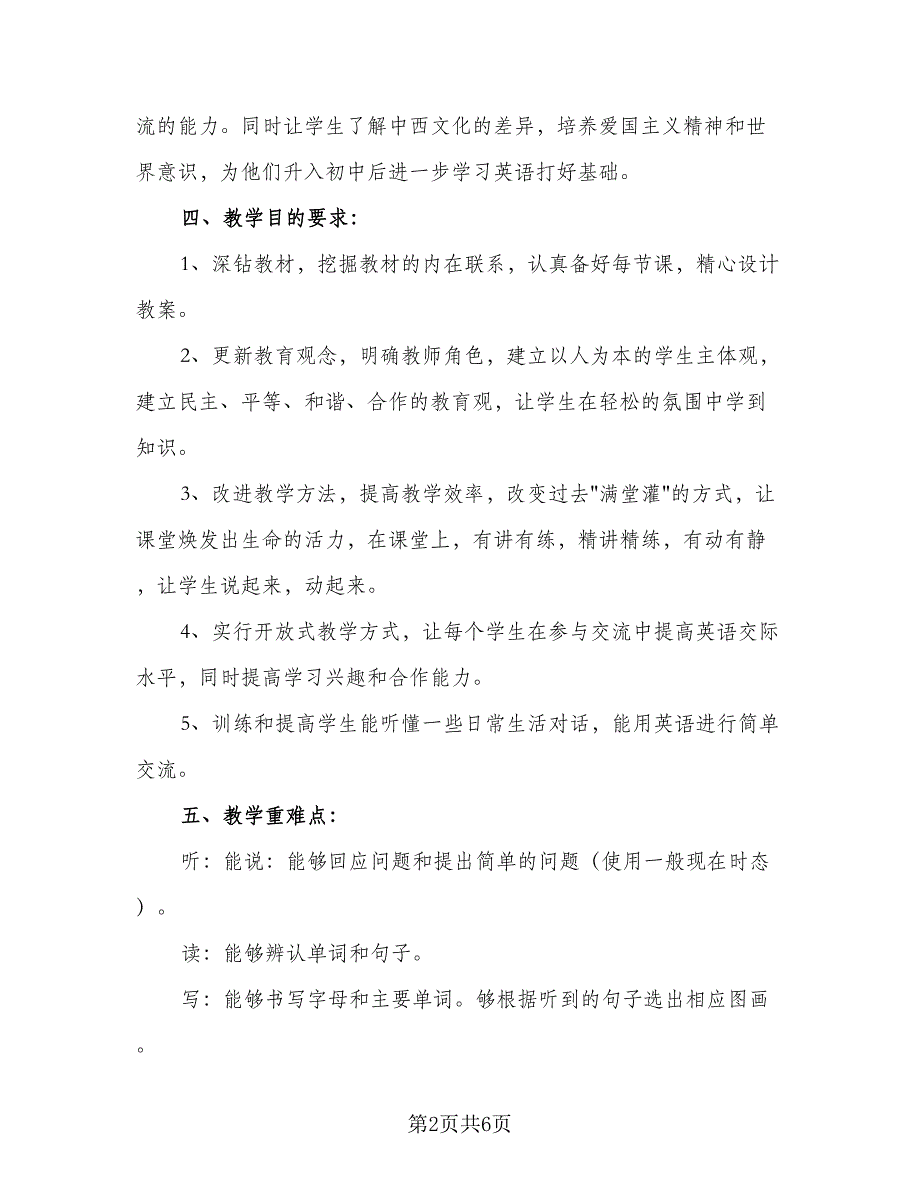 流的能力。同时让学生了解中西文化的差异，培养爱国主义精神和世
界意识，为他们升入初中后进一步学习英语打好基础。
四、教学目的要求：
1、深钻教材，挖掘教材的内在联系，认真备好每节课，精心设计
教案。
2、更新教育观念，明确教师角色，建立以人为本的学生主体观，
建立民主、平等、和谐、合作的教育观，让学生在轻松的氛围中学到
知识。
3、改进教学方法，提高教学效率，改变过去"满堂灌"的方式，让
课堂焕发出生命的活力，在课堂上，有讲有练，精讲精练，有动有静
，让学生说起来，动起来。
4、实行开放式教学方式，让每个学生在参与交流中提高英语交际
水平，同时提高学习兴趣和合作能力。
5、训练和提高学生能听懂一些日常生活对话，能用英语进行简单
交流。
五、教学重难点：
听：能说：能够回应问题和提出简单的问题（使用一般现在时态
）。
读：能够辨认单词和句子。
写：能够书写字母和主要单词。够根据听到的句子选出相应图画
。
第2页共6页